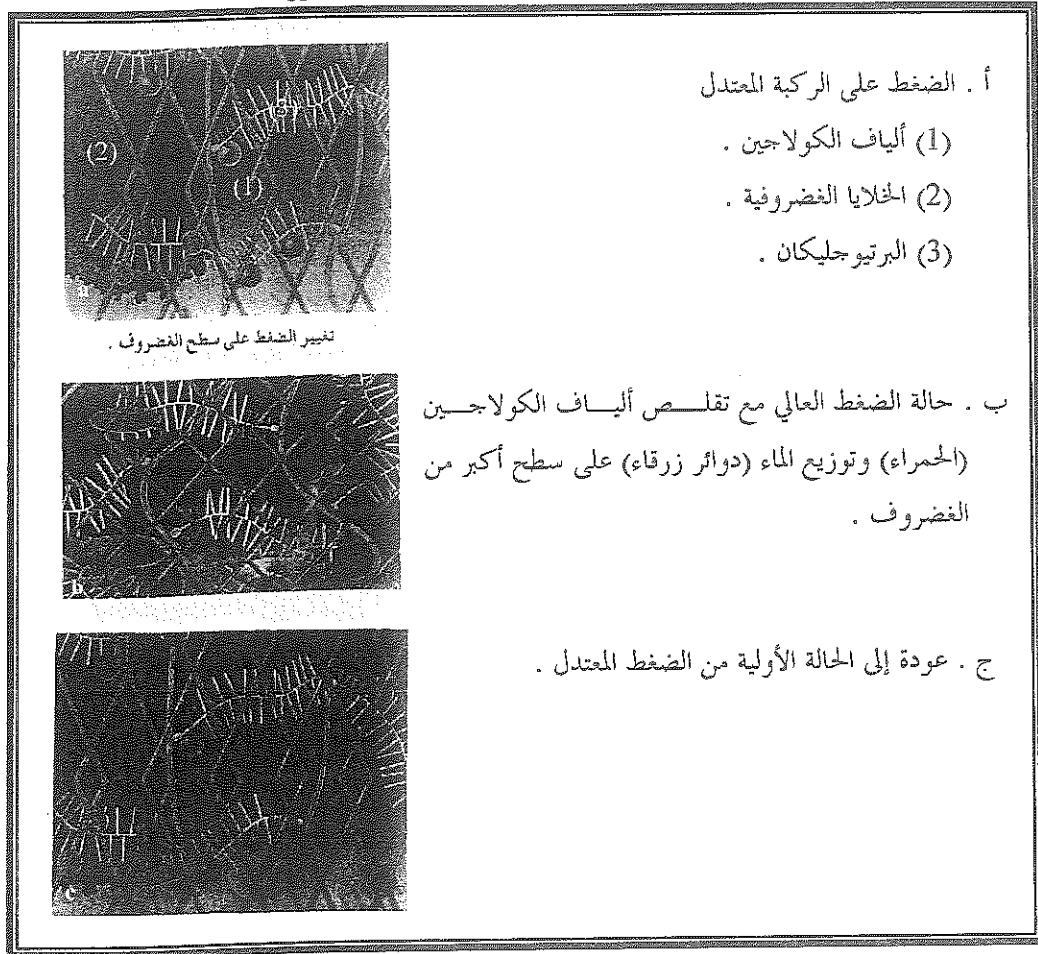 أ . الضغط على الركبة المعتدل
(1) ألياف الكولاجين .
(2) الخلايا الغضروفية .
(3) البرتيوجليكان .
(3)
(2)
(1)
a
تغيير الضغط على سطح الغضروف .
ب . حالة الضغط العالي مع تقلـــص أليـــاف الكولاجـــين
(الحمراء) وتوزيع الماء (دوائر زرقاء) على سطح أكبر من
الغضروف .
b
ج . عودة إلى الحالة الأولية من الضغط المعتدل .
c